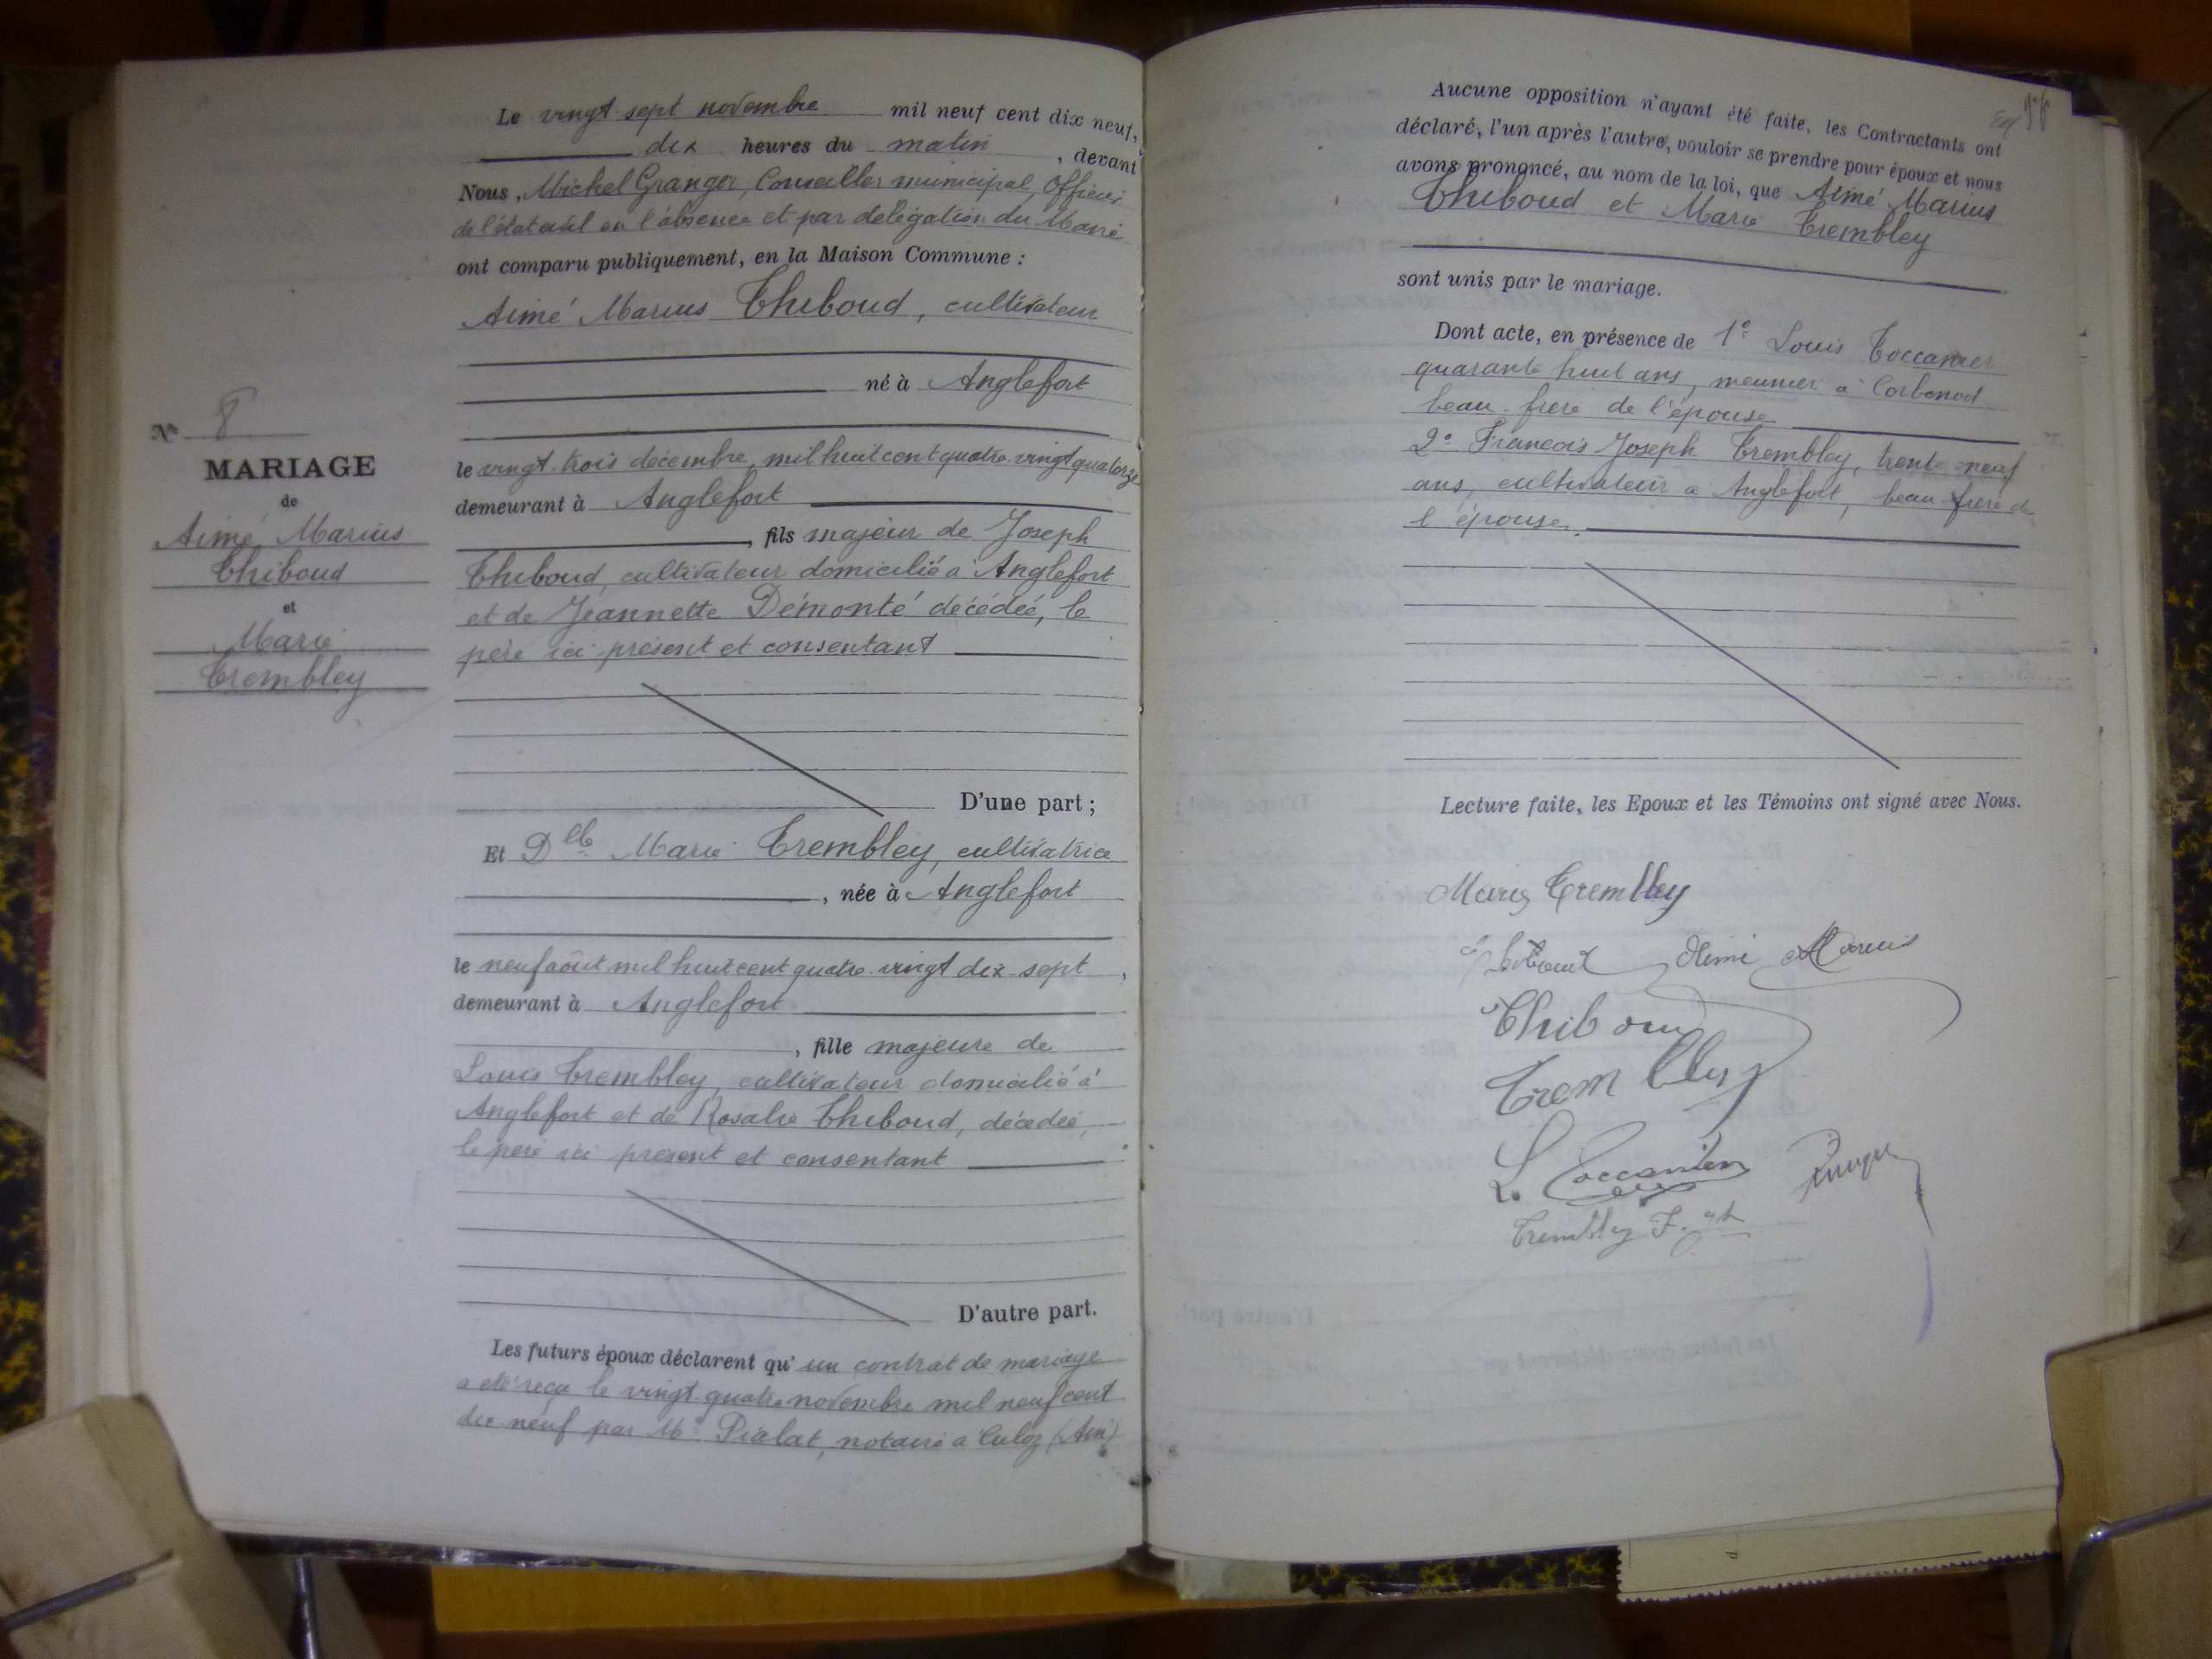 Le vingt-sept novembre mil neuf cent dix neuf,
dix heures du matin, devant
Nous, Michel Granger, Conseiller municipal, Officier
de l'état civil en l'absence et par délégation du Maire
ont comparu publiquement, en la Maison Commune :
Aimé Marius Thiboud, cultivateur
né à Anglefort
le vingt-trois décembre, mil huit cent quatre-vingt quatorze
demeurant à Anglefort
, fils majeur de Joseph
Thiboud, cultivateur domicilié à Anglefort
et de Jeannette Démonté décédée, le
père ici présent et consentant
D'une part ;
Et Dlle Marie Trembley, cultivatrice
, née à Anglefort
le neuf août mil huit cent quatre-vingt dix-sept,
demeurant à Anglefort
, fille majeure de
Louis Trembley, cultivateur domicilié à
Anglefort et de Rosalie Thiboud, décédée,
le père ici présent et consentant
D'autre part.
Les futurs époux déclarent qu'un contrat de mariage
a été reçu le vingt-quatre novembre mil neuf cent
dix neuf par Me Pialat, notaire à Culoz (Ain)
N° 8
MARIAGE
de
Aimé Marius
Thiboud
et
Marie
Trembley
Aucune opposition n'ayant été faite, les Contractants ont
déclaré, l'un après l'autre, vouloir se prendre pour époux et nous
avons prononcé, au nom de la loi, que Aimé Marius
Thiboud et Marie Trembley
sont unis par le mariage.
Dont acte, en présence de 1° Louis Toccanier
quarante huit ans, meunier à Corbonod
beau-frère de l'épouse
2° François Joseph Trembley, trente-neuf
ans, cultivateur à Anglefort, beau-frère de
l'épouse.
Lecture faite, les Epoux et les Témoins ont signé avec Nous.
Marie Trembley
Thiboud Aimé Marius
Thiboud
Trembley
L. Toccanier
Trembley F.